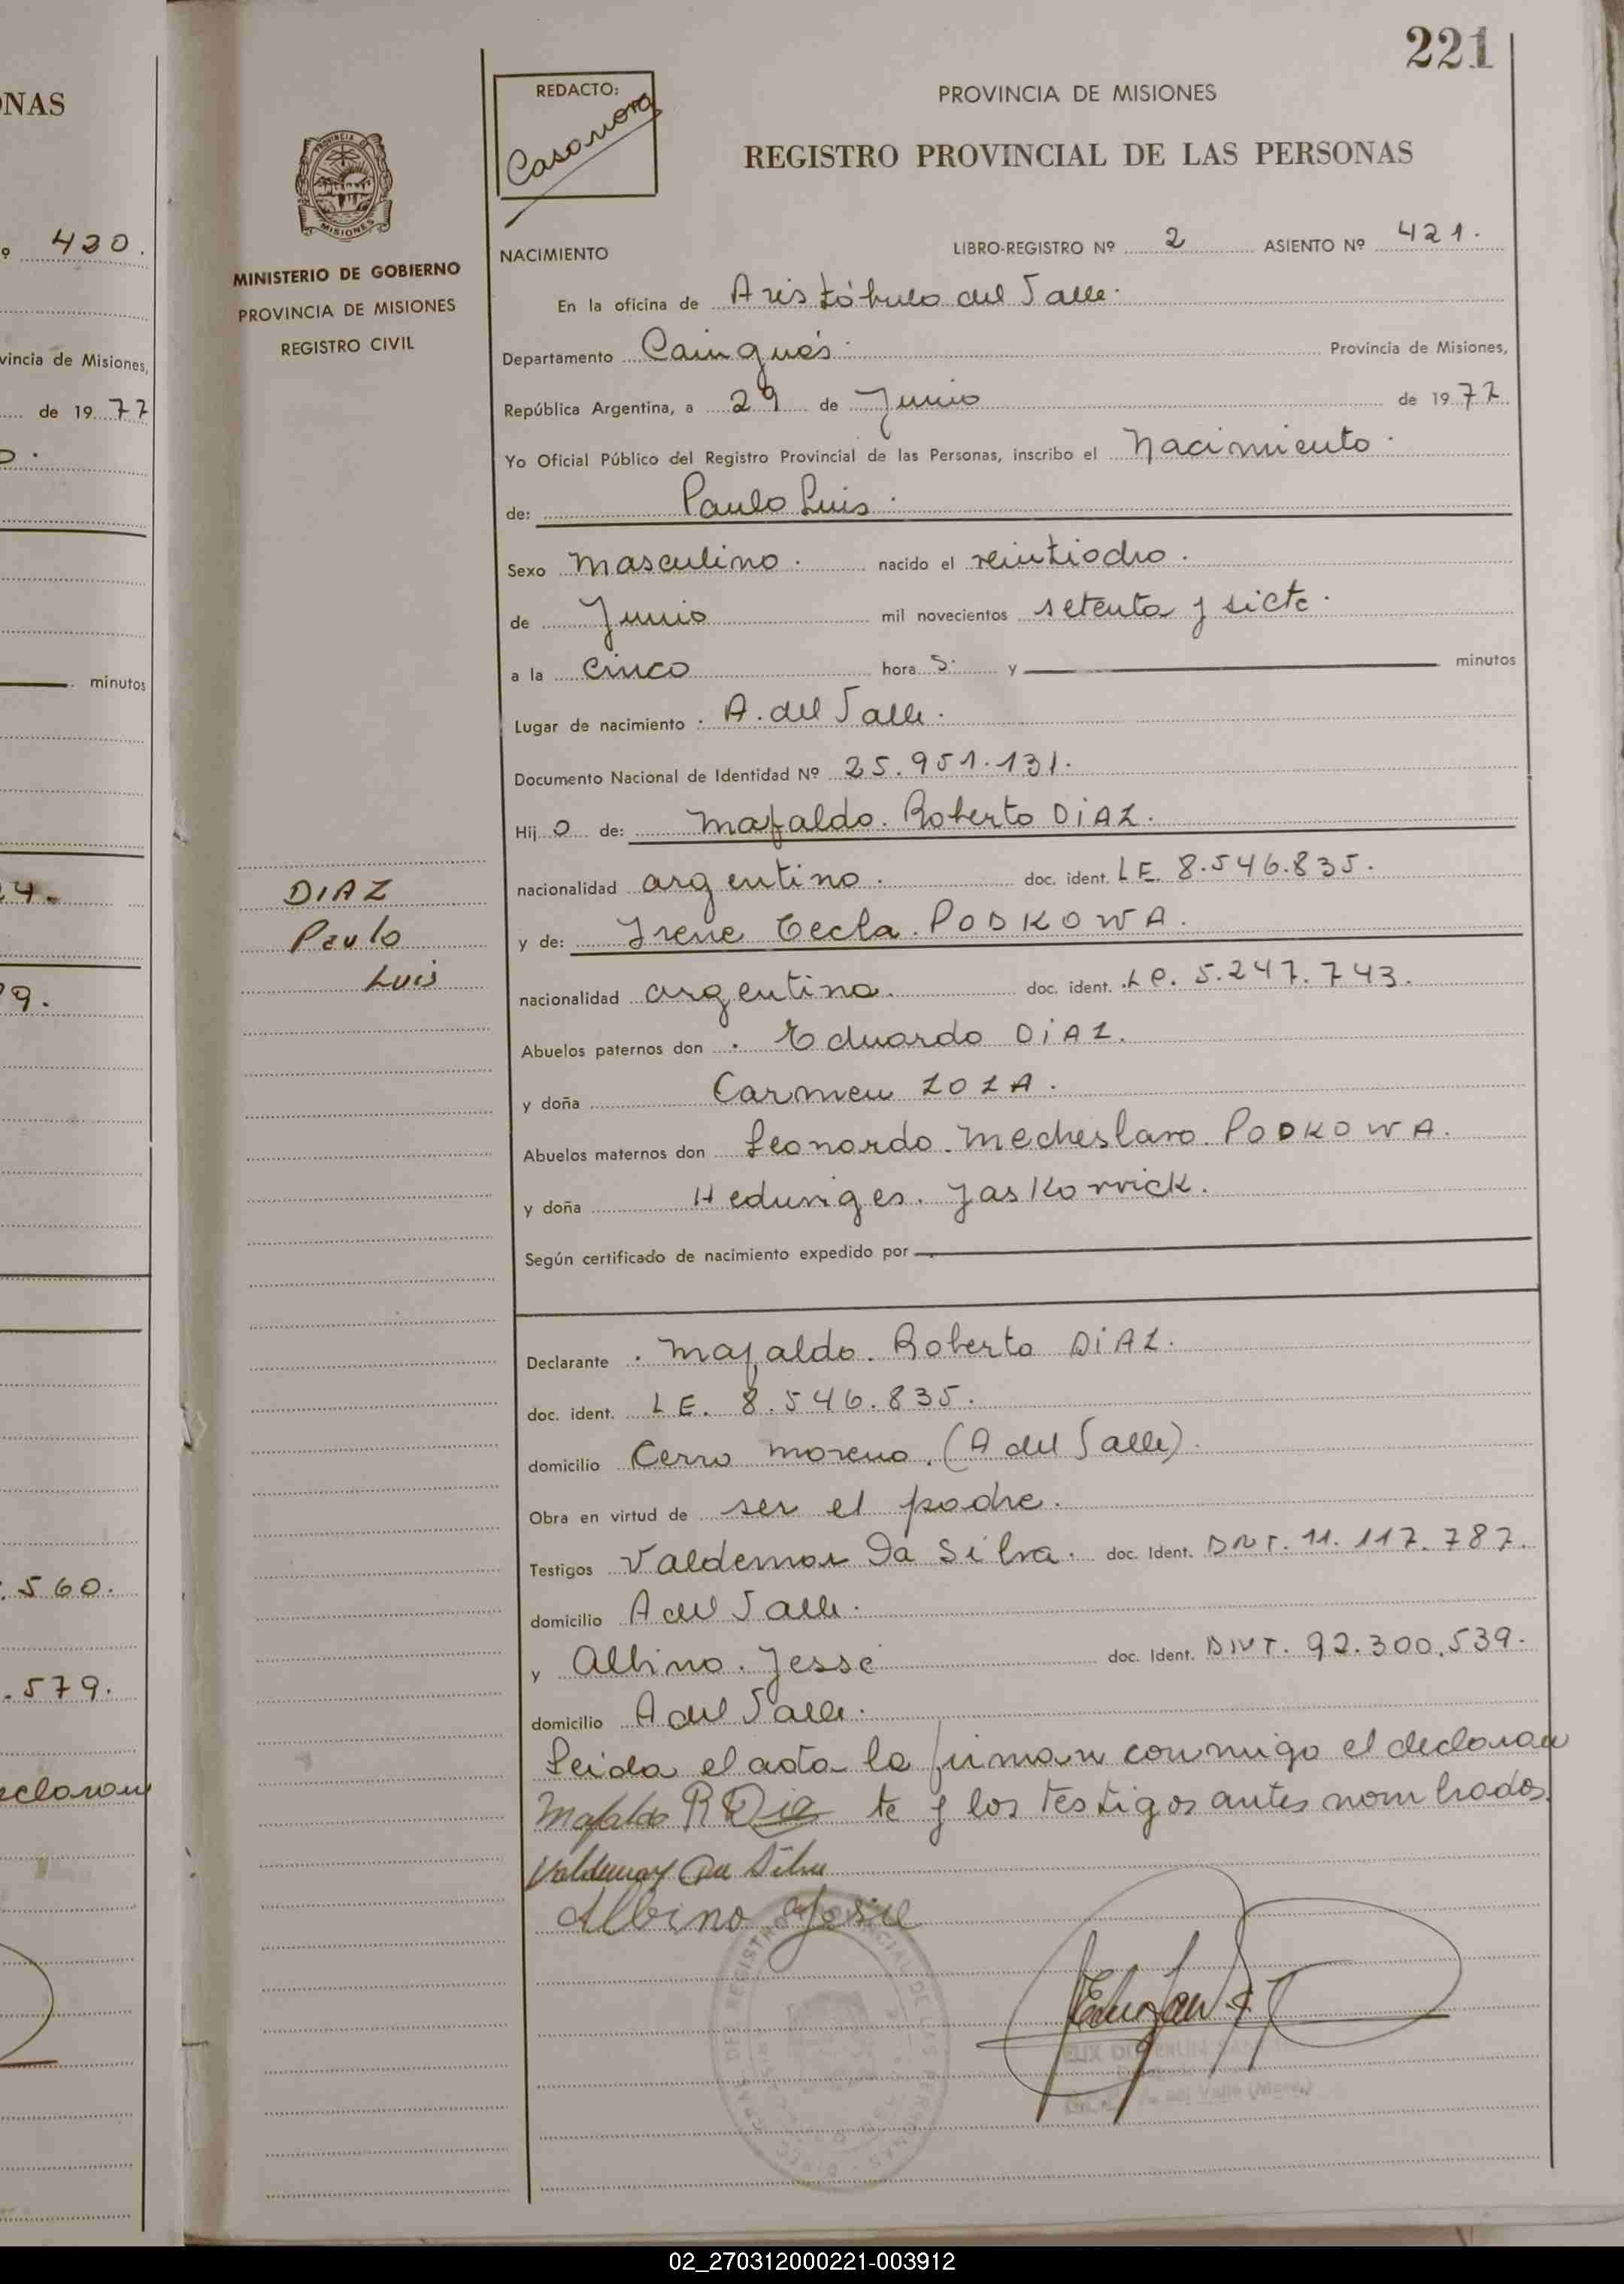 NAS
º 420.
vincia de Misiones,
de 19 77
minutos
24.
79.
.560.
.579.
eclaran
221
REDACTO:
Casanova
PROVINCIA DE MISIONES
REGISTRO PROVINCIAL DE LAS PERSONAS
MISIONES
MINISTERIO DE GOBIERNO
PROVINCIA DE MISIONES
REGISTRO CIVIL
DIAZ
Paulo
Luis
NACIMIENTO LIBRO-REGISTRO Nº 2 ASIENTO Nº 421.
En la oficina de Aristóbulo del Valle.
Departamento Cainguás. Provincia de Misiones,
República Argentina, a 29 de Junio de 1977
Yo Oficial Público del Registro Provincial de las Personas, inscribo el Nacimiento.
de: Paulo Luis.
Sexo Masculino. nacido el veintiocho.
de Junio mil novecientos setenta y siete.
a la cinco hora s. y minutos
Lugar de nacimiento: A. del Valle.
Documento Nacional de Identidad Nº 25.951.131.
Hij o de: Mafaldo. Roberto DIAZ.
nacionalidad argentino. doc. ident. LE. 8.546.835.
y de: Irene Tecla. PODKOWA.
nacionalidad argentina. doc. ident. LC. 5.247.743.
Abuelos paternos don . Eduardo DIAZ.
y doña Carmen LOZA.
Abuelos maternos don Leonardo. Mecheslavo. PODKOWA.
y doña Heduviges. Jaskorvick.
Según certificado de nacimiento expedido por
Declarante . Mafaldo. Roberto DIAZ.
doc. ident. LE. 8.546.835.
domicilio Cerro Moreno. (A del Valle).
Obra en virtud de ser el padre.
Testigos Valdemar Da Silva. doc. Ident. DNI. 11.117.787.
domicilio A del Valle.
y Albino. Jesse doc. Ident. DNI. 92.300.539.
domicilio A del Valle.
Leida el acta la firman conmigo el declaran
Mafaldo R Diaz te y los testigos antes nombrados.
Valdemar Da Silva
Albino
REGISTRO PROVINCIAL DE LAS PERSONAS
del Valle (Mnes.)
02_270312000221-003912